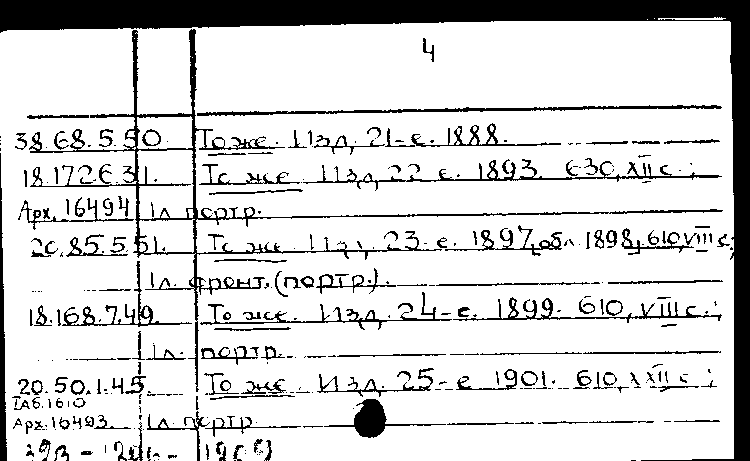 4
38.68.5.50. То же. Изд. 21-е. 1888.
18.172.6.31. То же. Изд. 22-е. 1893. 630, XII с.;
Арх. 16494 1 л. портр.
20.85.5.51. То же. Изд. 23-е. 1897, обл. 1898, 610, VIII с.;
1 л. фронт. (портр.).
18.168.7.49. То же. Изд. 24-е. 1899. 610, VIII с.;
1 л. портр.
20.50.1.45. То же. Изд. 25-е 1901. 610, XXII с.;
IАб.1610
Арх.16493. 1 л. портр.